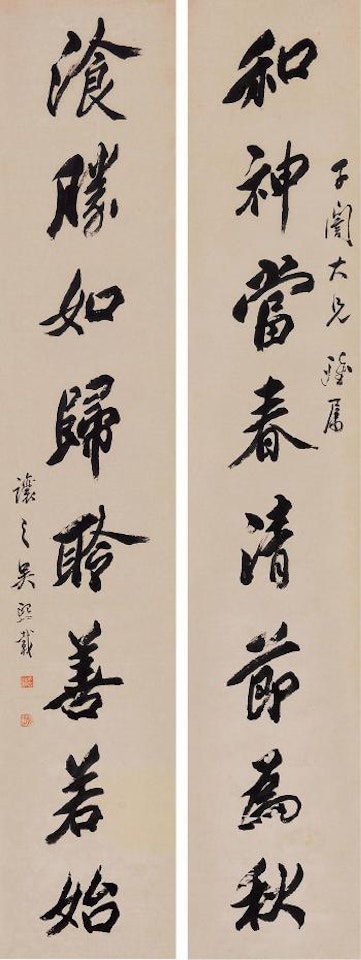 子闇大兄属
和神當春清節為秋
湌勝如歸聆善若始
讓之吳熙載